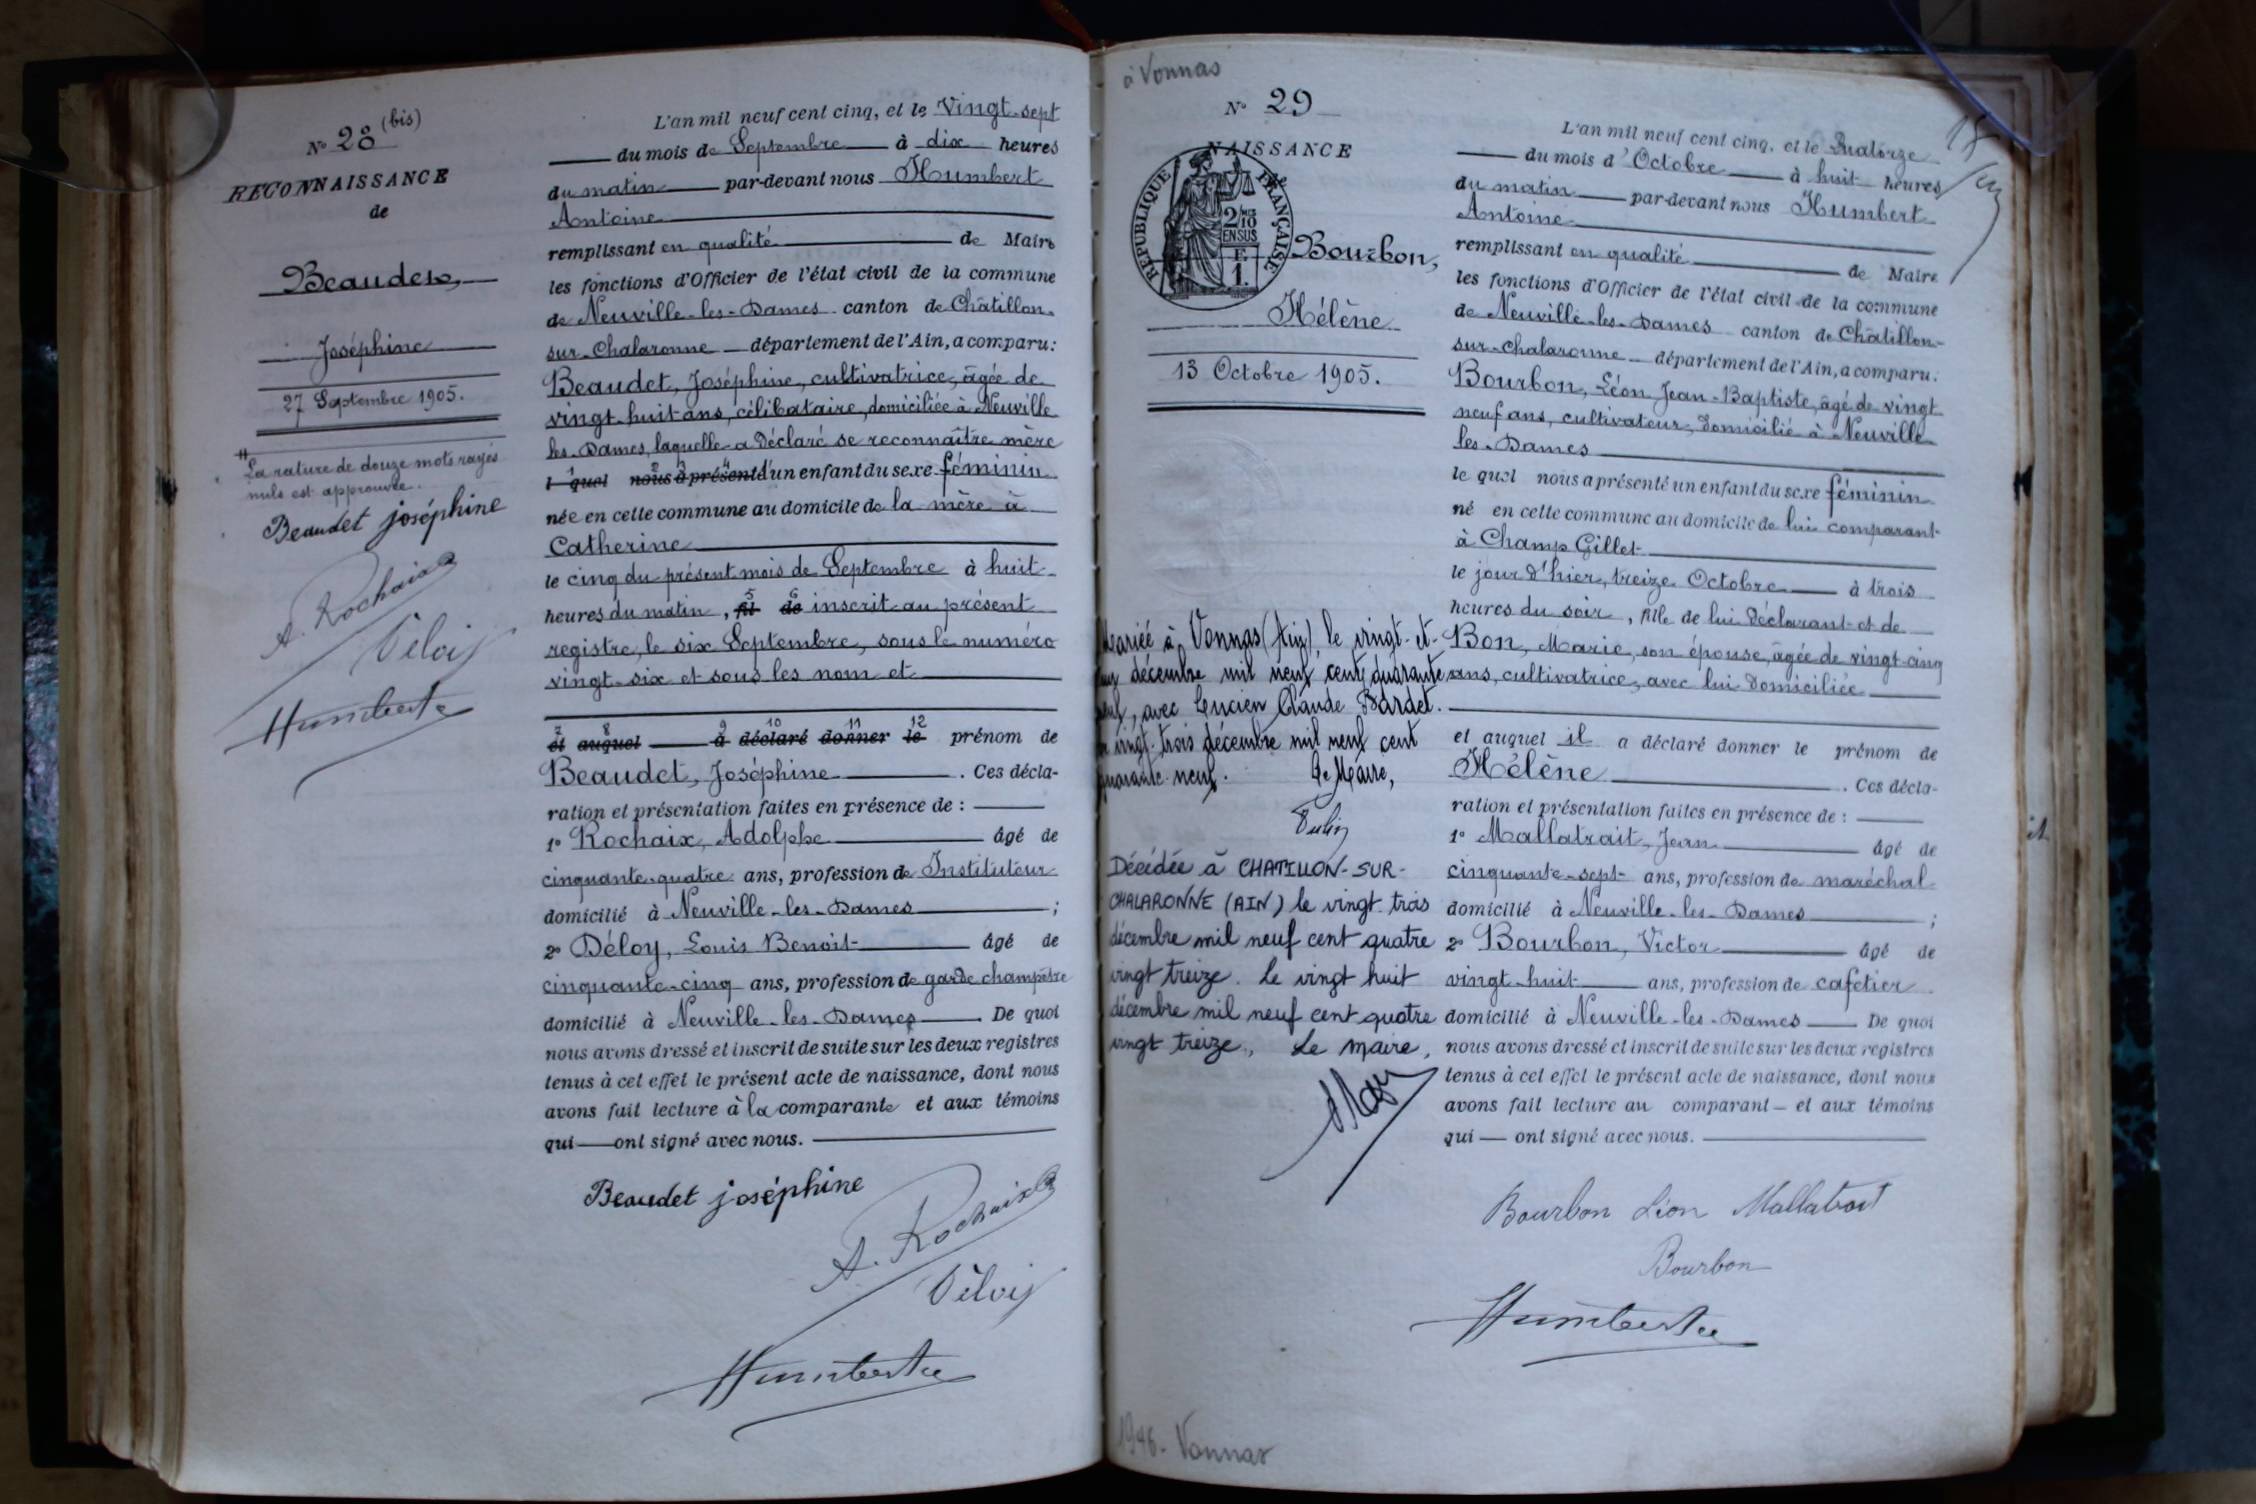 N° 28 (bis)
RECONNAISSANCE
de
Beaudet,
Joséphine
27 Septembre 1905.
La rature de douze mots rayés
nuls est approuvée.
Beaudet joséphine
A. Rochaix
Déloy
Humbert
L'an mil neuf cent cinq, et le Vingt-sept
du mois de Septembre à dix heures
du matin par-devant nous Humbert
Antoine
remplissant en qualité de Maire
les fonctions d'Officier de l'état civil de la commune
de Neuville-les-Dames canton de Châtillon-
sur-Chalaronne département de l'Ain, a comparu:
Beaudet, Joséphine, cultivatrice, âgée de
vingt-huit ans, célibataire, domiciliée à Neuville
les-Dames, laquelle a déclaré se reconnaître mère
l quel nous a présenté d'un enfant du sexe féminin
née en cette commune au domicile de la mère à
Catherine
le cinq du présent mois de Septembre à huit
heures du matin, fil de inscrit au présent
registre, le six Septembre, sous le numéro
vingt-six et sous les nom et
et auquel a déclaré donner le prénom de
Beaudet, Joséphine. Ces décla-
ration et présentation faites en présence de :
1° Rochaix, Adolphe âgé de
cinquante-quatre ans, profession de Instituteur
domicilié à Neuville-les-Dames ;
2° Déloy, Louis Benoit âgé de
cinquante-cinq ans, profession de garde champêtre
domicilié à Neuville-les-Dames. De quoi
nous avons dressé et inscrit de suite sur les deux registres
tenus à cet effet le présent acte de naissance, dont nous
avons fait lecture à la comparante et aux témoins
qui ont signé avec nous.
Beaudet joséphine
A. Rochaix
Déloy
Humbert
à Vonnas
N° 29
NAISSANCE
RÉPUBLIQUE FRANÇAISE
2/10
EN SUS
F.
1.
Bourbon,
Hélène
13 Octobre 1905.
Mariée à Vonnas (Ain), le vingt-et-
un décembre mil neuf cent quarante
neuf, avec Lucien Claude Bardet.
Le vingt-trois décembre mil neuf cent
quarante-neuf. Le Maire,
Décédée à CHATILLON-SUR-
CHALARONNE (AIN) le vingt trois
décembre mil neuf cent quatre
vingt treize. Le vingt huit
décembre mil neuf cent quatre
vingt treize, Le Maire,
L'an mil neuf cent cinq, et le Quatorze
du mois d'Octobre à huit heures
du matin par-devant nous Humbert
Antoine
remplissant en qualité de Maire
les fonctions d'Officier de l'état civil de la commune
de Neuville-les-Dames canton de Châtillon-
sur-Chalaronne département de l'Ain, a comparu:
Bourbon, Léon Jean-Baptiste, âgé de vingt
neuf ans, cultivateur, domicilié à Neuville
les-Dames
le quel nous a présenté un enfant du sexe féminin
né en cette commune au domicile de lui comparant
à Champ Gillet
le jour d'hier, treize Octobre à trois
heures du soir, fille de lui déclarant et de
Bon, Marie, son épouse, âgée de vingt-cinq
ans, cultivatrice, avec lui domiciliée
et auquel il a déclaré donner le prénom de
Hélène. Ces décla-
ration et présentation faites en présence de :
1° Mallatrait, Jean âgé de
cinquante-sept ans, profession de maréchal
domicilié à Neuville-les-Dames ;
2° Bourbon, Victor âgé de
vingt-huit ans, profession de cafetier
domicilié à Neuville-les-Dames De quoi
nous avons dressé et inscrit de suite sur les deux registres
tenus à cet effet le présent acte de naissance, dont nous
avons fait lecture au comparant et aux témoins
qui ont signé avec nous.
Bourbon Léon Mallatrait
Bourbon
Humbert
1946. Vonnas